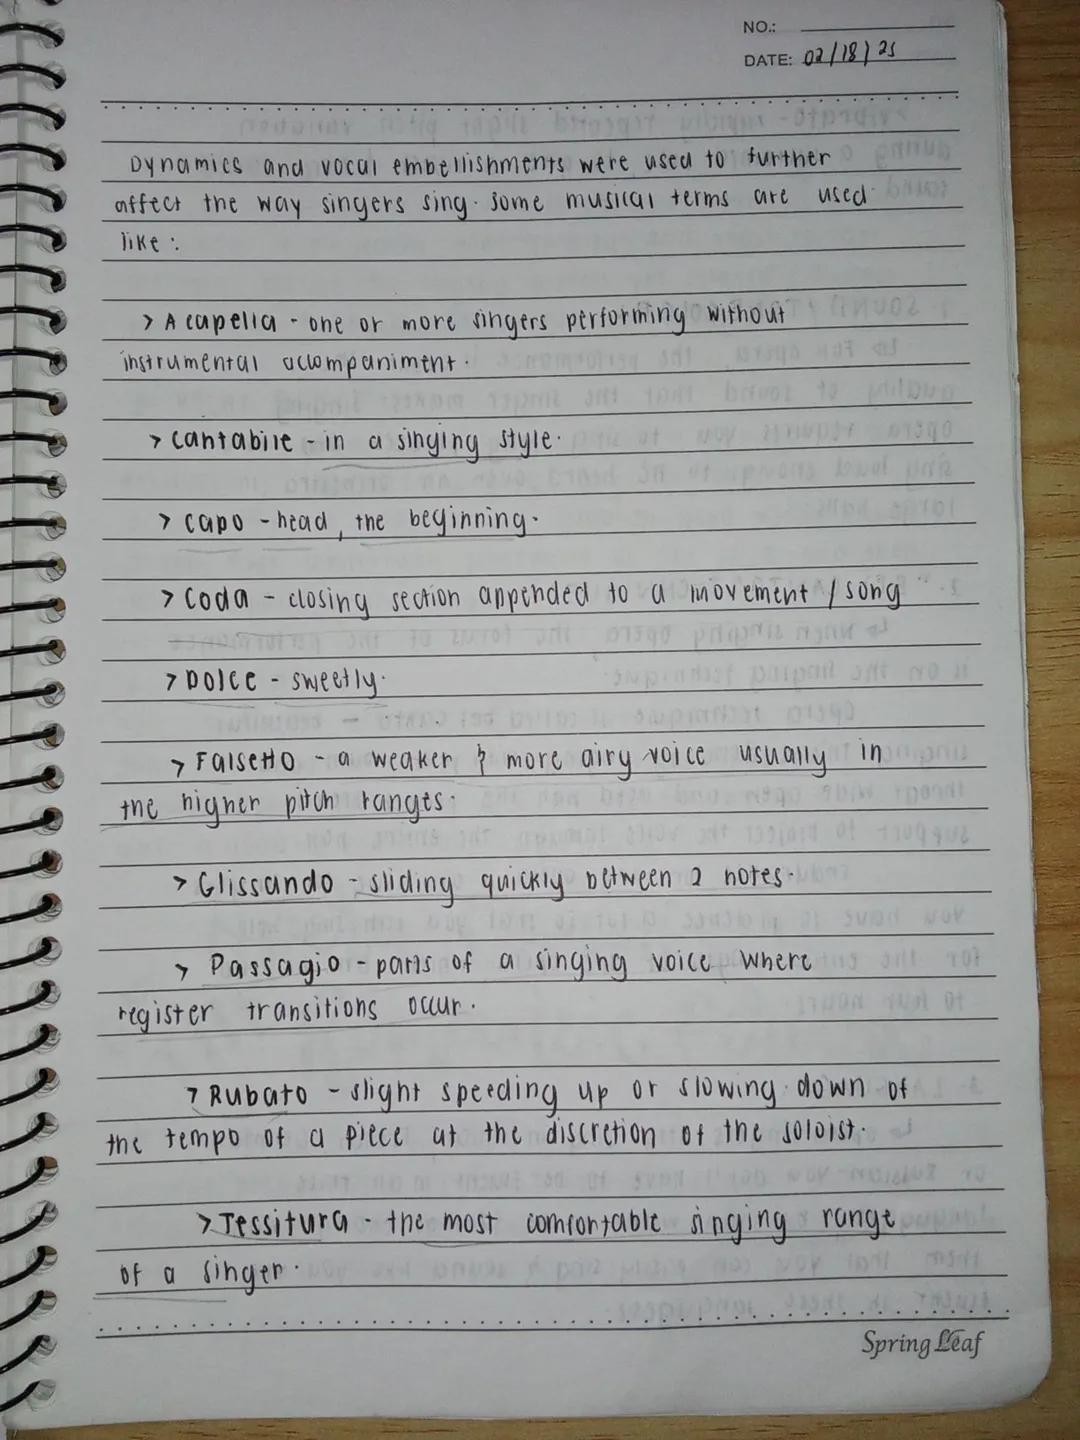 NO.:
DATE: 02/18/25
Dynamics and vocal embellishments were used to further
affect the way singers sing. Some musical terms are used
like :
> A capella - one or more singers performing without
instrumental accompaniment.
> Cantabile - in a singing style.
> Capo - head, the beginning.
> Coda - closing section appended to a movement / song
> Dolce - sweetly.
> Falsetto - a weaker & more airy voice usually in
the higher pitch ranges.
> Glissando - sliding quickly between 2 notes.
> Passagio - parts of a singing voice where
register transitions occur.
> Rubato - slight speeding up or slowing down of
the tempo of a piece at the discretion of the soloist.
> Tessitura - the most comfortable singing range
of a singer.
Spring Leaf